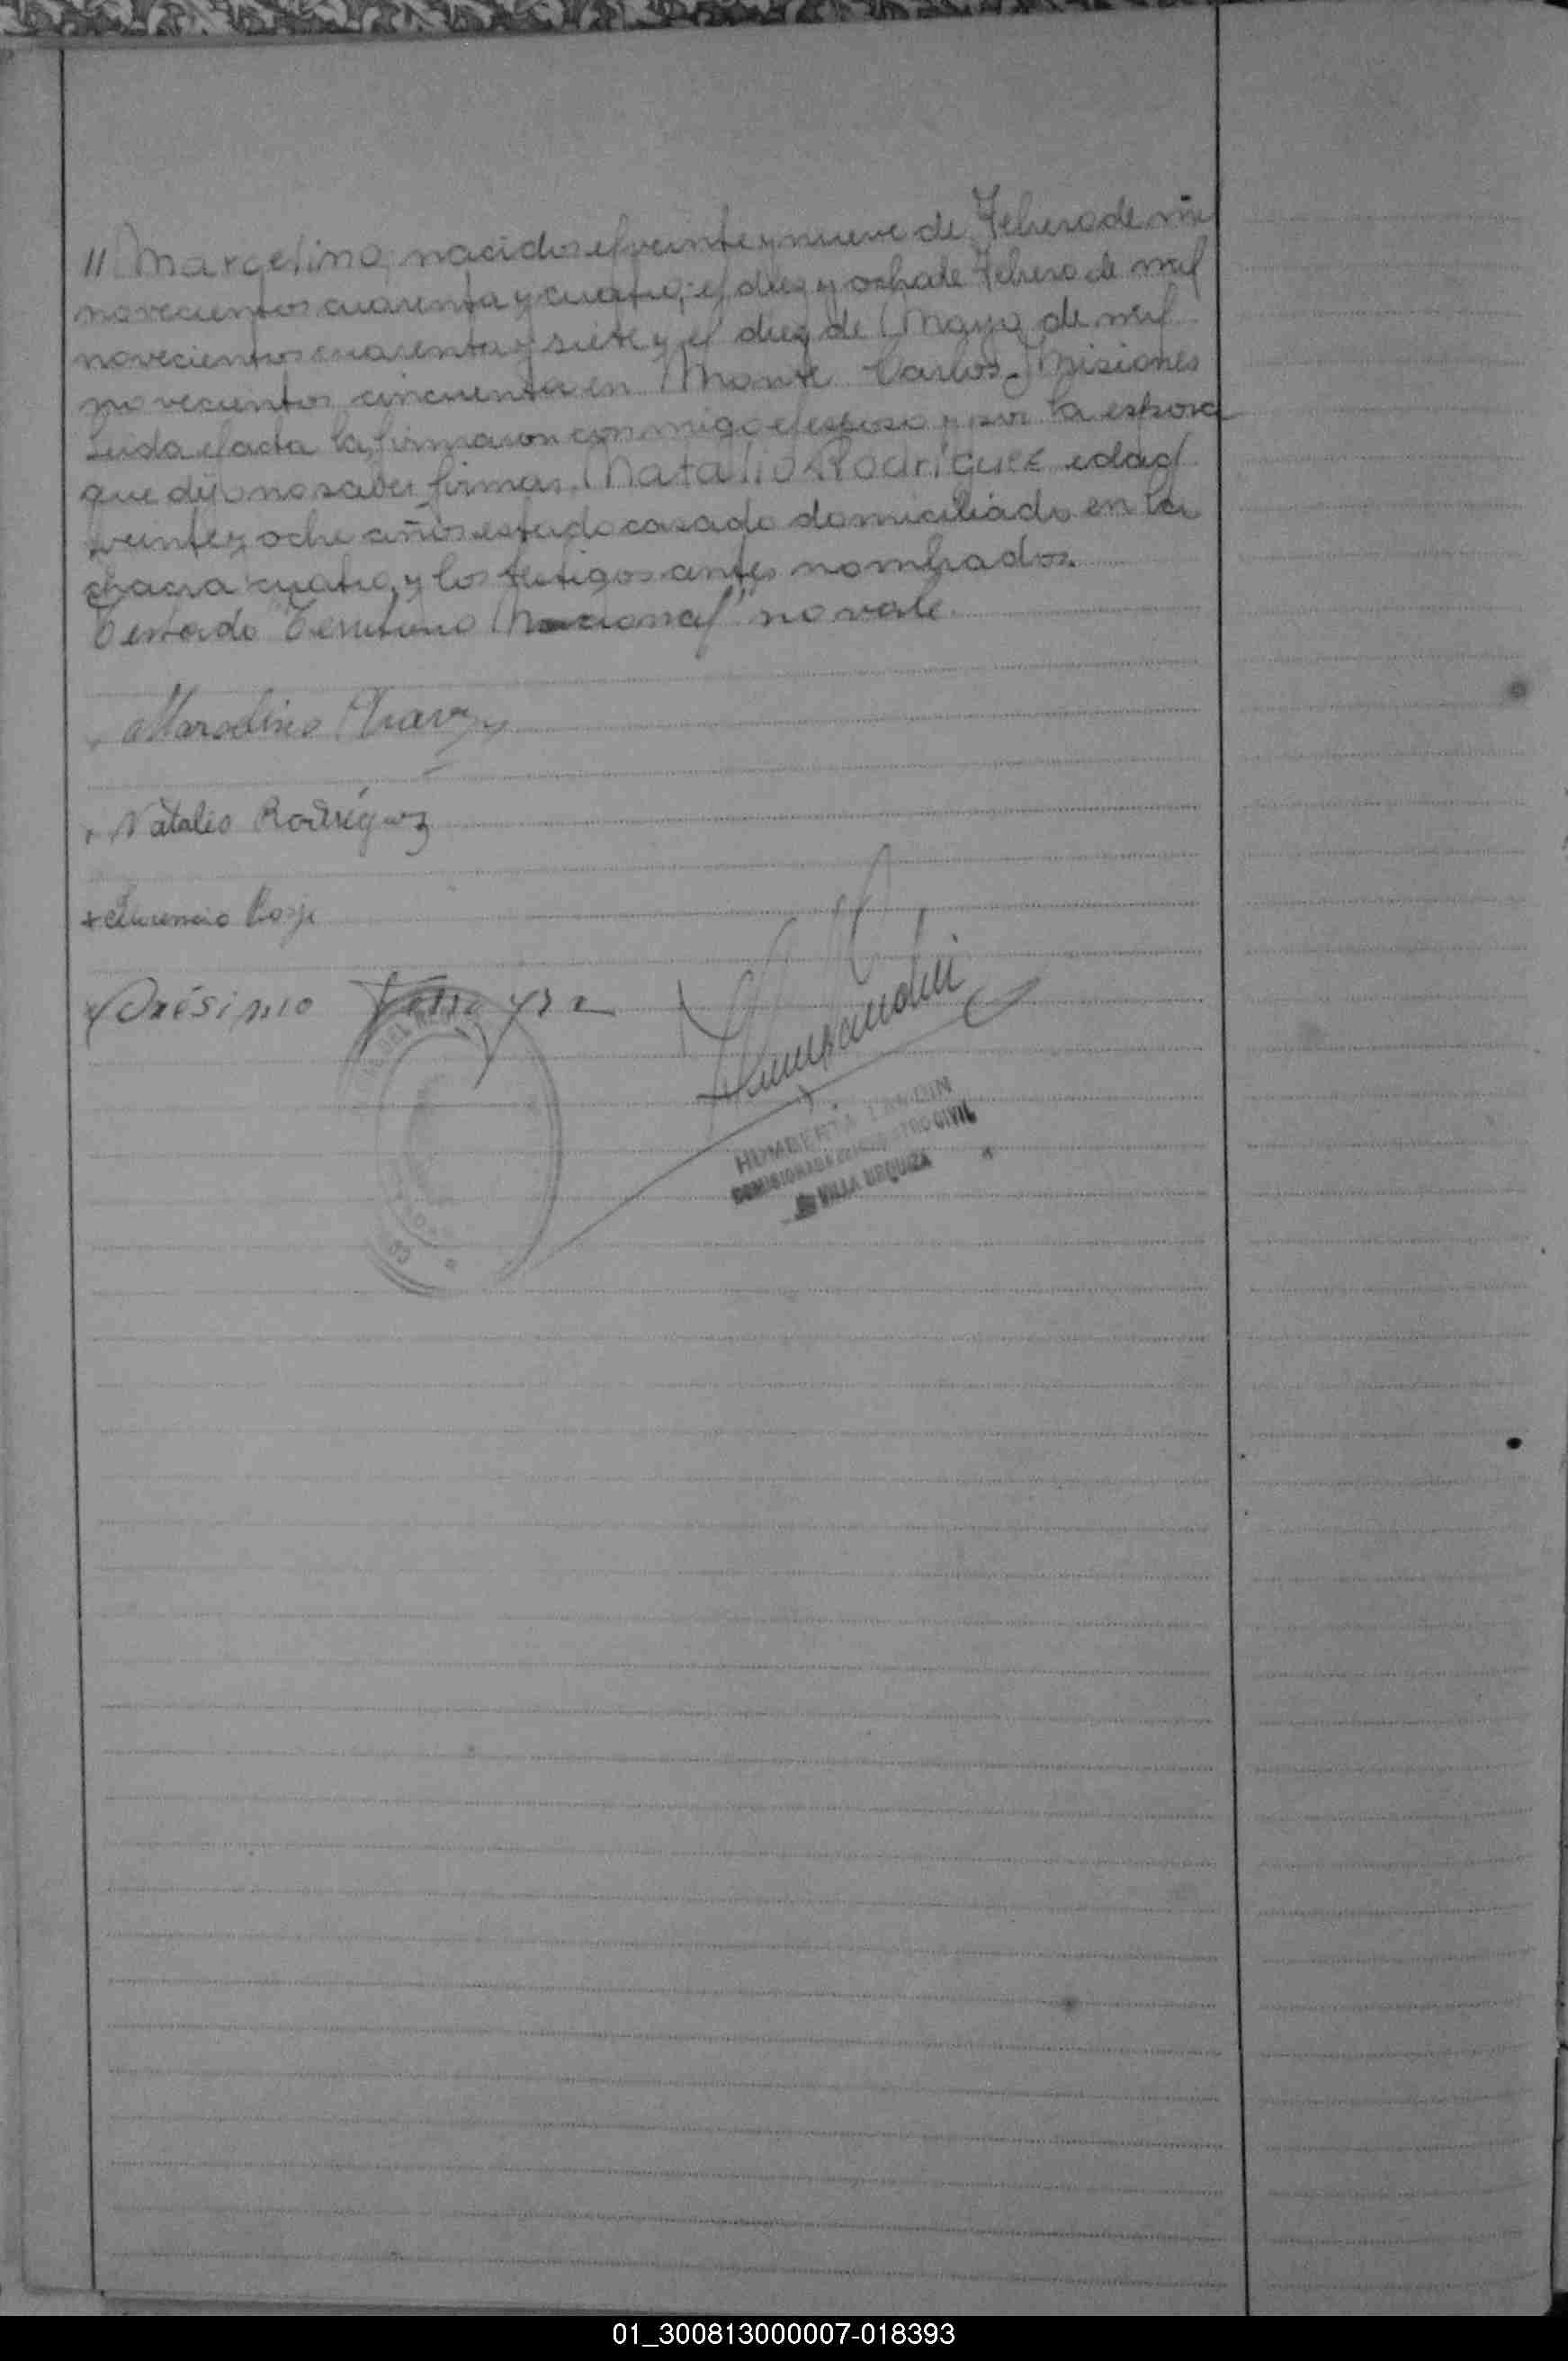 // Margelino, nacidos el veinte y nueve de Febrero de mil
novecientos cuarenta y cuatro; el diez y ocho de Febrero de mil
novecientos cuarenta y siete y el diez de Mayo de mil
novecientos cincuenta en Monte Carlos Misiones
Leida el acta la firmaron conmigo el esposo y por la esposa
que dijo no saber firmar Natalio Rodríguez edad
veinte y ocho años estado casado domiciliado en la
chacra cuatro, y los testigos antes nombrados.
Testado "Territorio Nacional" no vale.
Marcelino
Natalio Rodríguez
Onésimo
HUMBERTA LANDIN
COMISIONADA REGISTRO CIVIL
VILLA URQUIZA
01_300813000007-018393